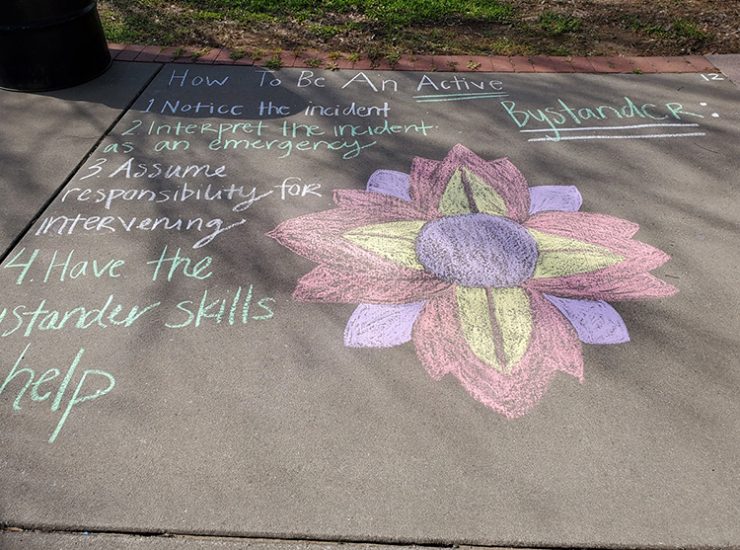 How To Be An Active Bystander:
1 Notice the incident
2 Interpret the incident
as an emergency
3 Assume
responsibility for
intervening
4. Have the
ystander skills
help
12